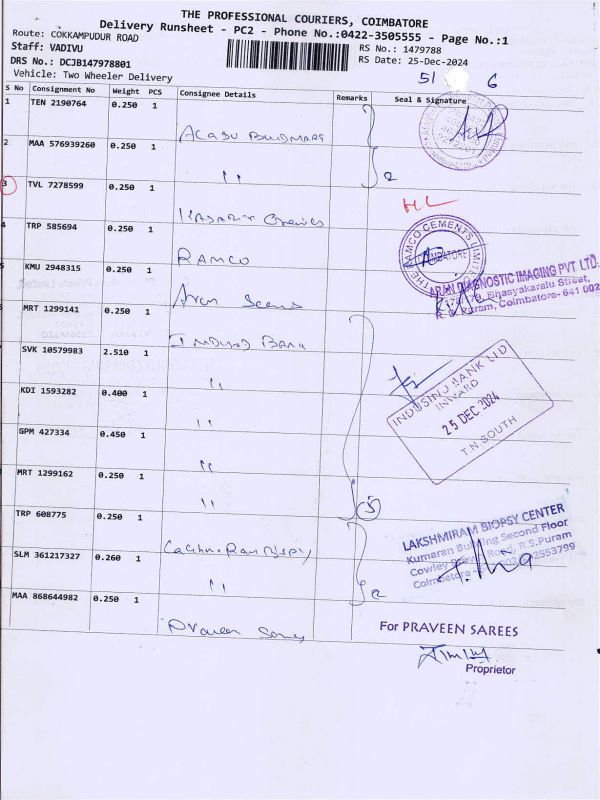 THE PROFESSIONAL COURIERS, COIMBATORE
Delivery Runsheet - PC2 - Phone No.:0422-3505555 - Page No.:1
Route: COKKAMPUDUR ROAD
Staff: VADIVU
RS No.: 1479788
DRS No.: DCJB147978801
RS Date: 25-Dec-2024
Vehicle: Two Wheeler Delivery
51 6
S No Consignment No Weight PCS Consignee Details Remarks Seal & Signature
1 TEN 2190764 0.250 1
2 MAA 576939260 0.250 1 "
2
3 TVL 7278599 0.250 1
4 TRP 585694 0.250 1 RAMCO
THE RAMCO CEMENTS LIMITED
COIMBATORE
KMU 2948315 0.250 1 Aran Scans
ARAN DIAGNOSTIC IMAGING PVT. LTD.
Bhasyakaralu Street,
Puram, Coimbatore- 641 002
MRT 1299141 0.250 1 INDUSIND BANK
SVK 10579983 2.510 1 "
KDI 1593282 0.400 1 "
GPM 427334 0.450 1 "
MRT 1299162 0.250 1 "
5
INDUSIND BANK LTD
INWARD
25 DEC 2024
T.N. SOUTH
TRP 608775 0.250 1
SLM 361217327 0.260 1 "
2
LAKSHMIRAM BIOPSY CENTER
Kumaran Building Second Floor
Cowley Brown Road, R.S.Puram
Coimbatore
MAA 868644982 0.250 1 Praveen Sarees
For PRAVEEN SAREES
Proprietor